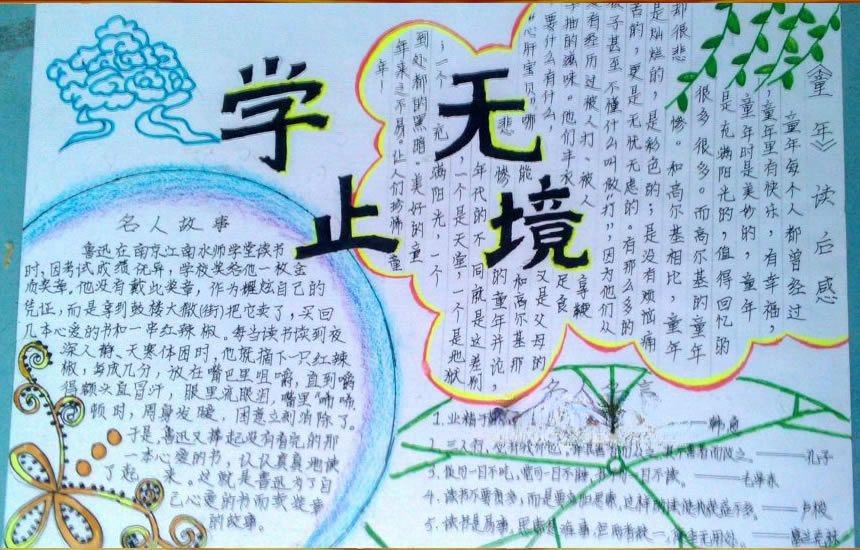 学无
止境
名人故事
鲁迅在南京江南水师学堂读书
时,因考试成绩优异,学校奖给他一枚金
质奖章。他没有戴此奖章,作为炫耀自己的
凭证,而是拿到鼓楼大散(街)把它卖了,买回
几本心爱的书和一串红辣椒。每当读书读到夜
深人静、天寒体困时,他就摘下一只红辣
椒,每成几分,放在嘴巴里咀嚼,直到嚼
得额头直冒汗,眼里流眼泪,嘴里"唏唏,
顿时,周身发暖,困意立刻消除了。
于是鲁迅又捧起没有看完的那
一本心爱的书,认认真真地读
了起来。这就是鲁迅为了自
己心爱的书而卖奖章
的故事。
《童年》读后感
童年每个人都曾经过
童年里有快乐,有幸福,
童年时是美妙的,童年
是充满阳光的,值得回忆的
很多很多。而高尔基的童年
惨。和高尔基相比,童年
却很悲
是灿烂的,是彩色的;是没有烦恼痛
苦的,更是无忧无虑的。有那么多的
孩子甚至不懂什么叫做"打",因为他们从
没有经历过被人打、被人
抽的滋味。他们丰衣
足食
要什么有什么,
又是父母的
"心肝宝贝"哪
能
和高尔基那
悲
惨
的童年并论,
年代的不同就是这差别
;一个
充
一个是天堂,一个是地狱
满阳光,一个
到处都的黑暗。美好的童
年来之不易。让人们珍惜童
年!
名人名言
1.业精于 ——韩愈
2、三人行,必有我师也。 其不善者而改之。——孔子
3、饭可一日不吃,觉可一日不睡, 一日不读。——毛泽东
4、读书不要贪多,而是要多加思索,这样的读 益不多。——卢梭
5、读书是易事,思索是难事,但两者缺一, 全无用处。——富兰克林